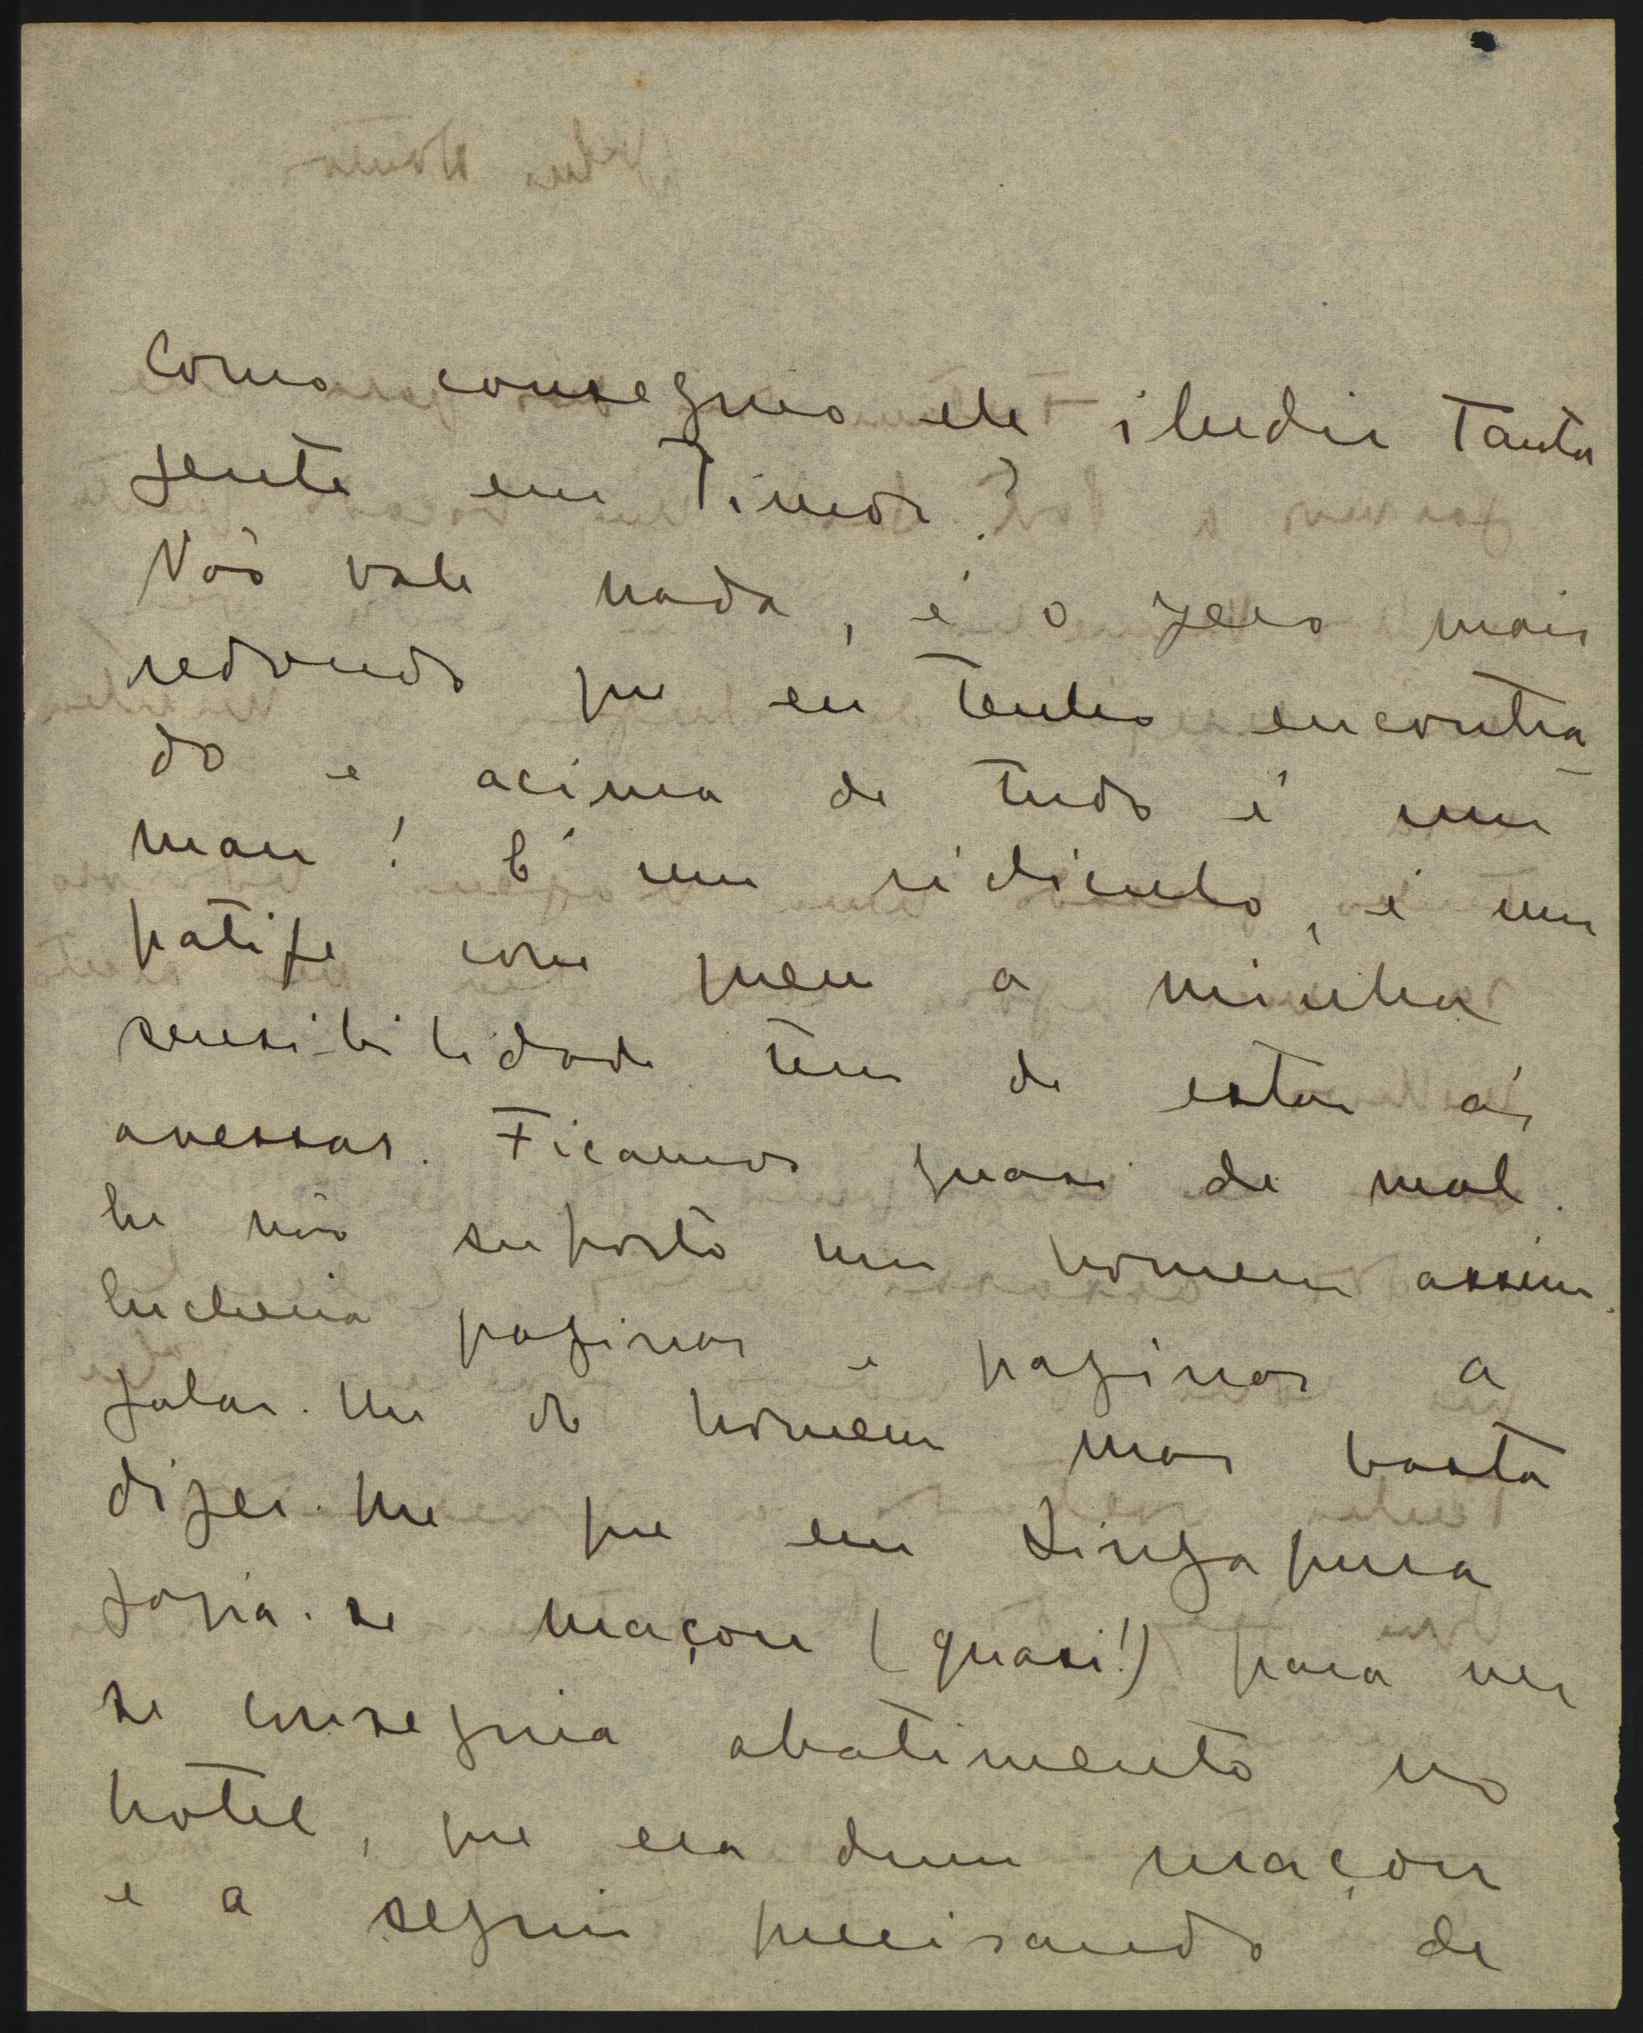 Como conseguio ele iludir tanta
gente em Timor?
Não vale nada, é o zero mais
redondo que eu tenho encontra-
do e acima de tudo é um
mau! É um ridiculo, é um
patife com quem a minha
sensibilidade tem de estar ás
avessas. Ficamos quasi de mal.
Eu não suporto um homem assim.
Encheria paginas e paginas a
falar-lhe do homem mas basta
dizer-lhe que em Singapura
fazia-se maçon (quasi!) para ver
se conseguia abatimento no
hotel, que era dum maçon
e a seguir precisando de